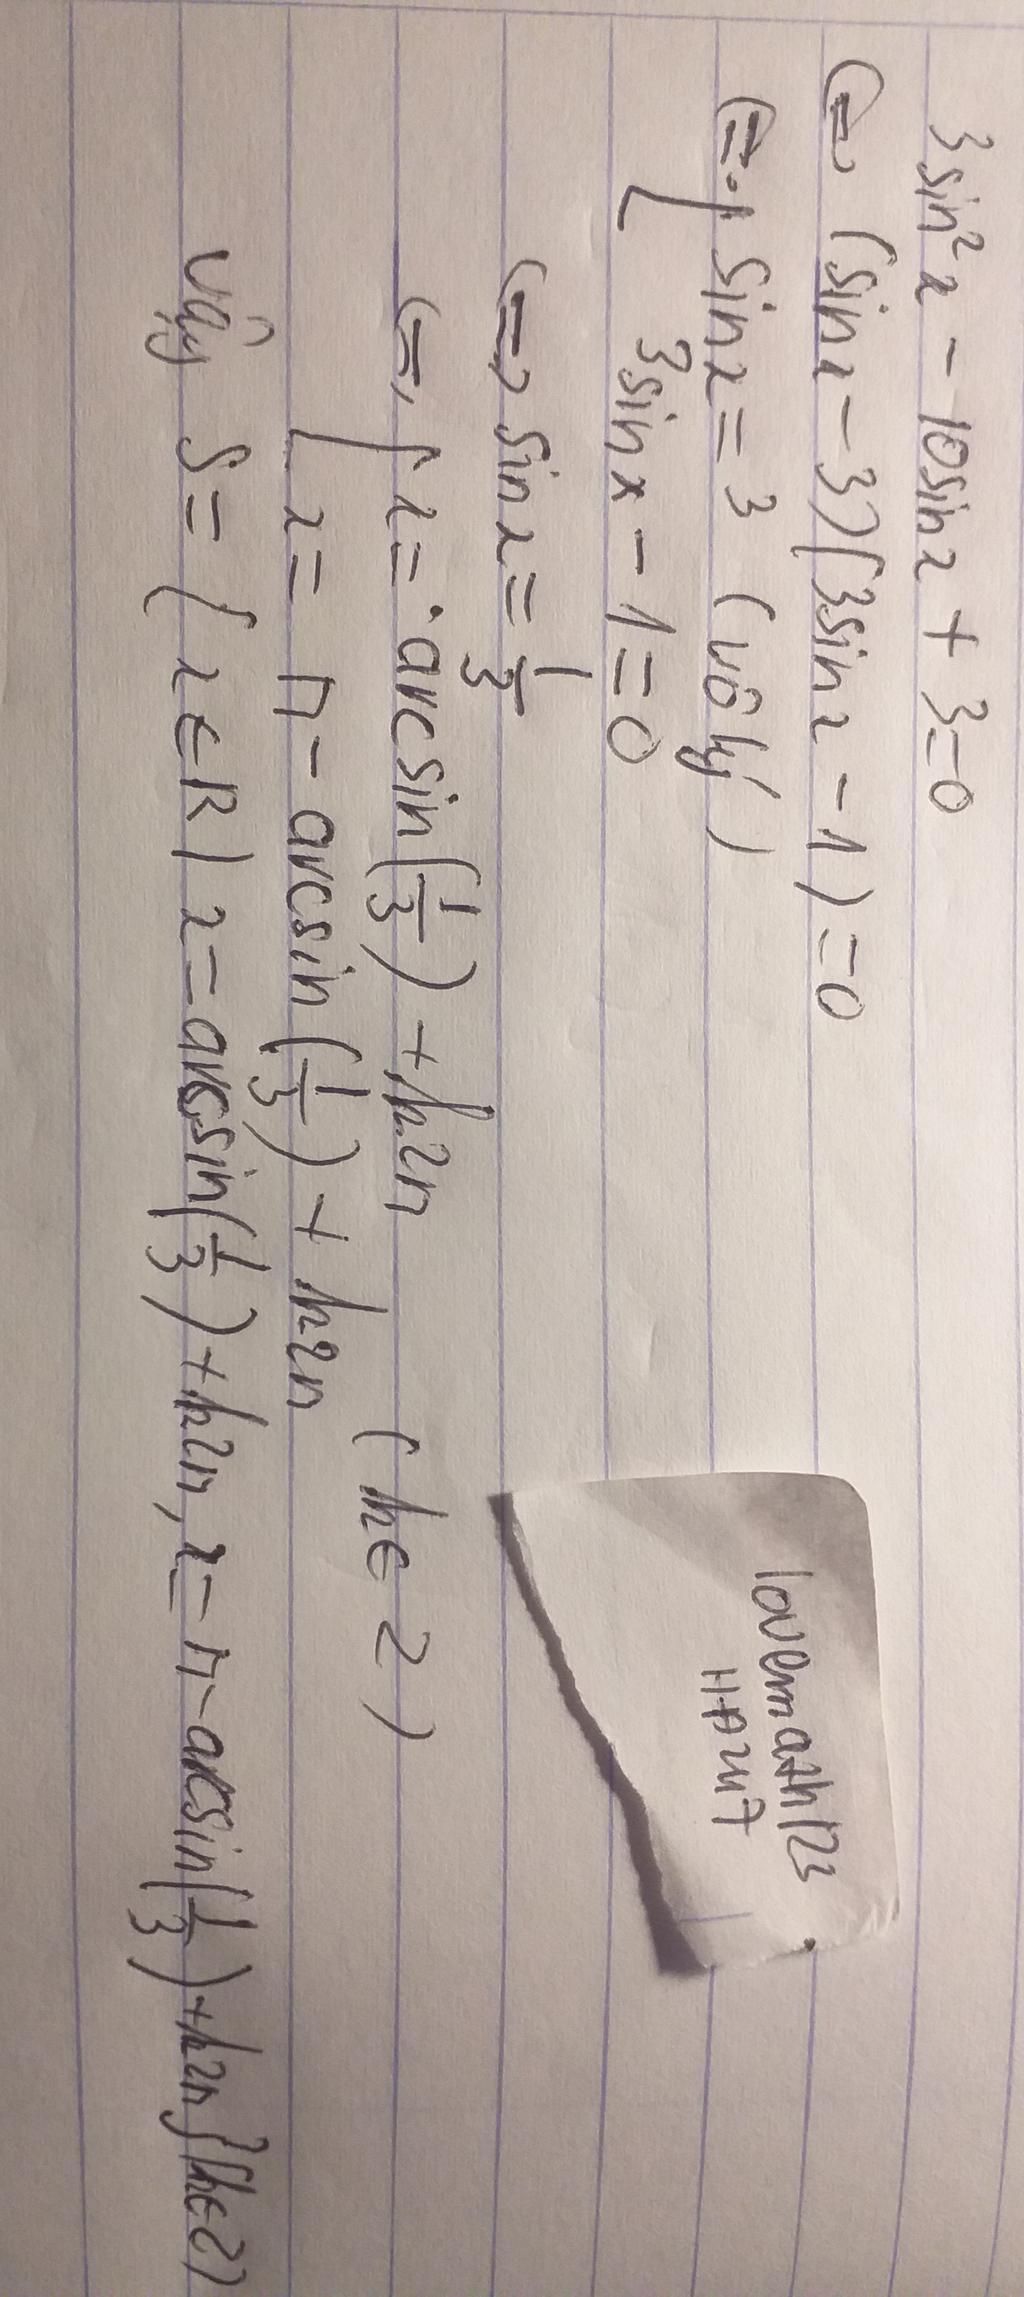 3sin² x - 10sin x + 3 = 0
⇔ (sin x - 3)(3sin x - 1) = 0
⇔ [ sin x = 3 (vô lý)
3sin x - 1 = 0
⇔ sin x = 1/3
⇔ [ x = arcsin(1/3) + k2π
x = π - arcsin(1/3) + k2π (k ∈ Z)
Vậy S = { x ∈ R | x = arcsin(1/3) + k2π, x = π - arcsin(1/3) + k2π } (k ∈ Z)
lovemath123